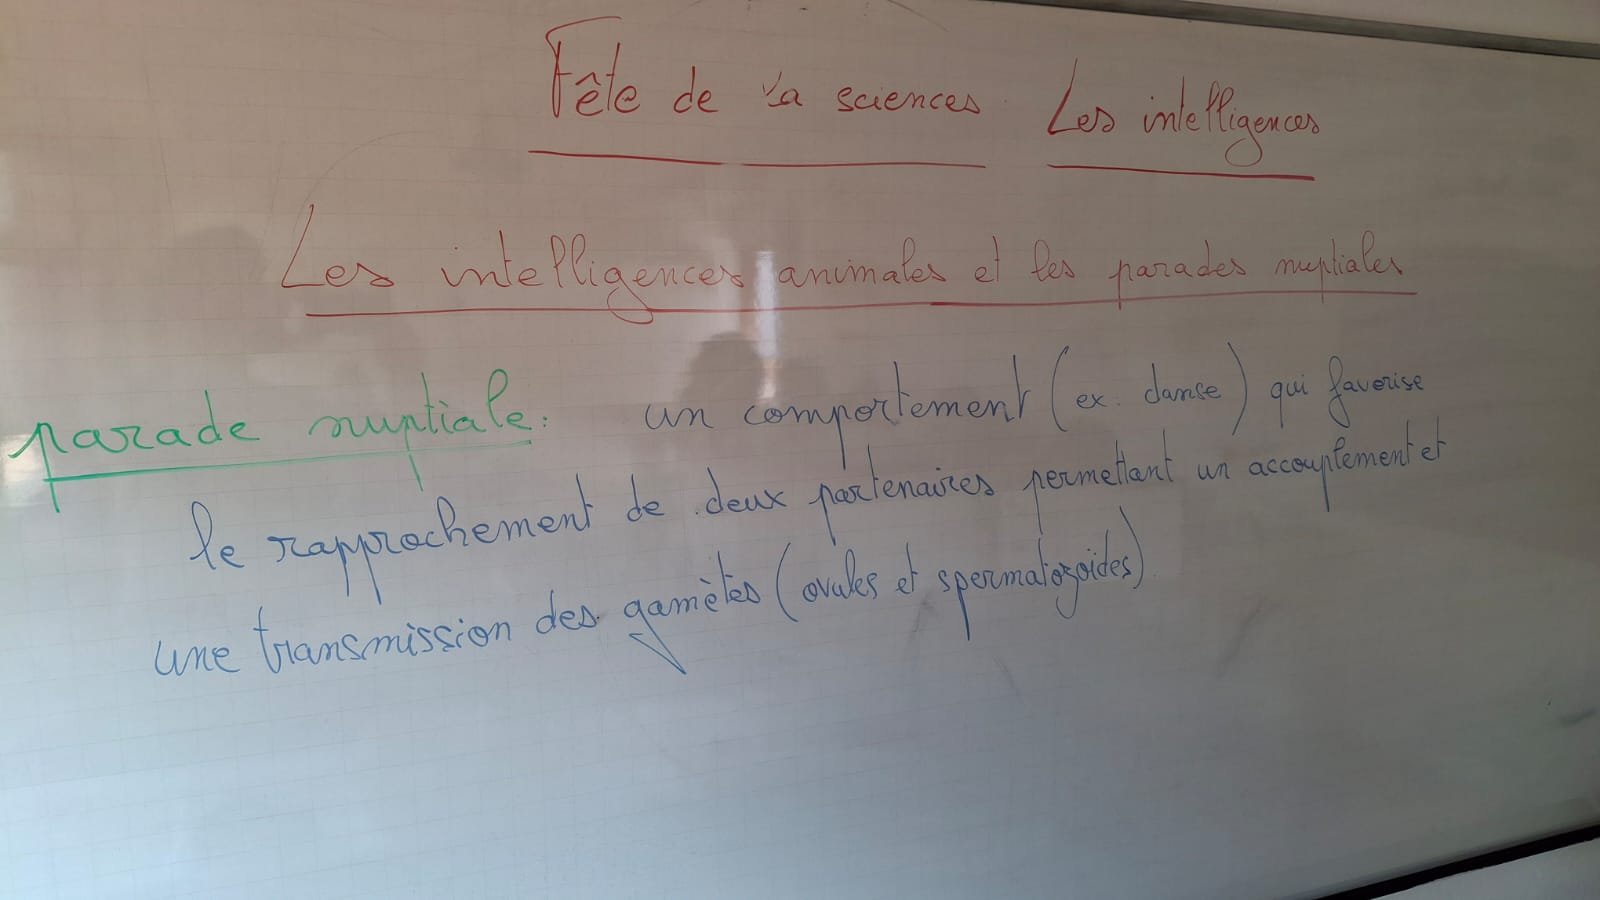 Fête de la sciences Les intelligences
Les intelligences animales et les parades nuptiales
parade nuptiale: un comportement (ex. danse) qui favorise
le rapprochement de deux partenaires permettant un accouplement et
une transmission des gamètes (ovules et spermatozoïdes)